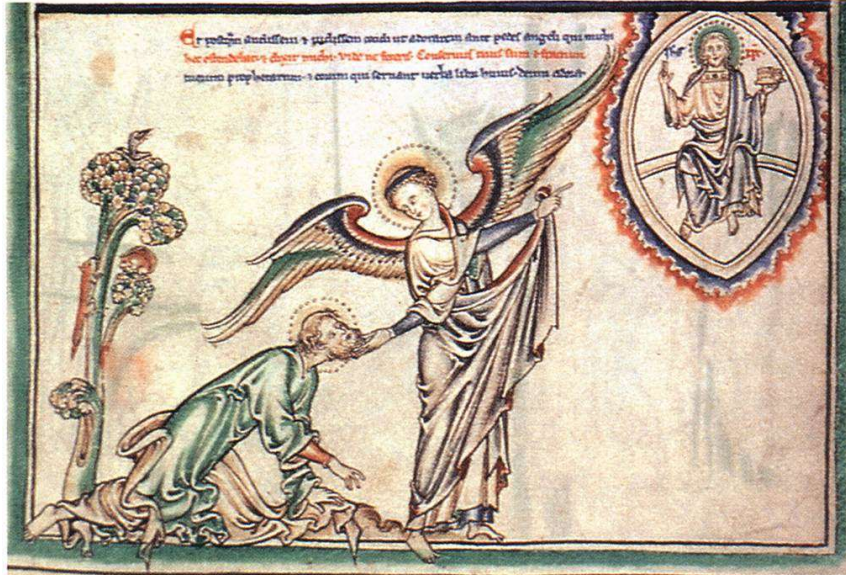 Et postqm audissem ⁊ vidissem cecidi ut adorarem ante pedes angeli qui michi
hec ostendebat· ⁊ dixit michi· Vide ne feceris· Conservus tuus sum ⁊ fratrum
tuorum prophetarum· ⁊ eorum qui servant verba libri huius· deum adora·